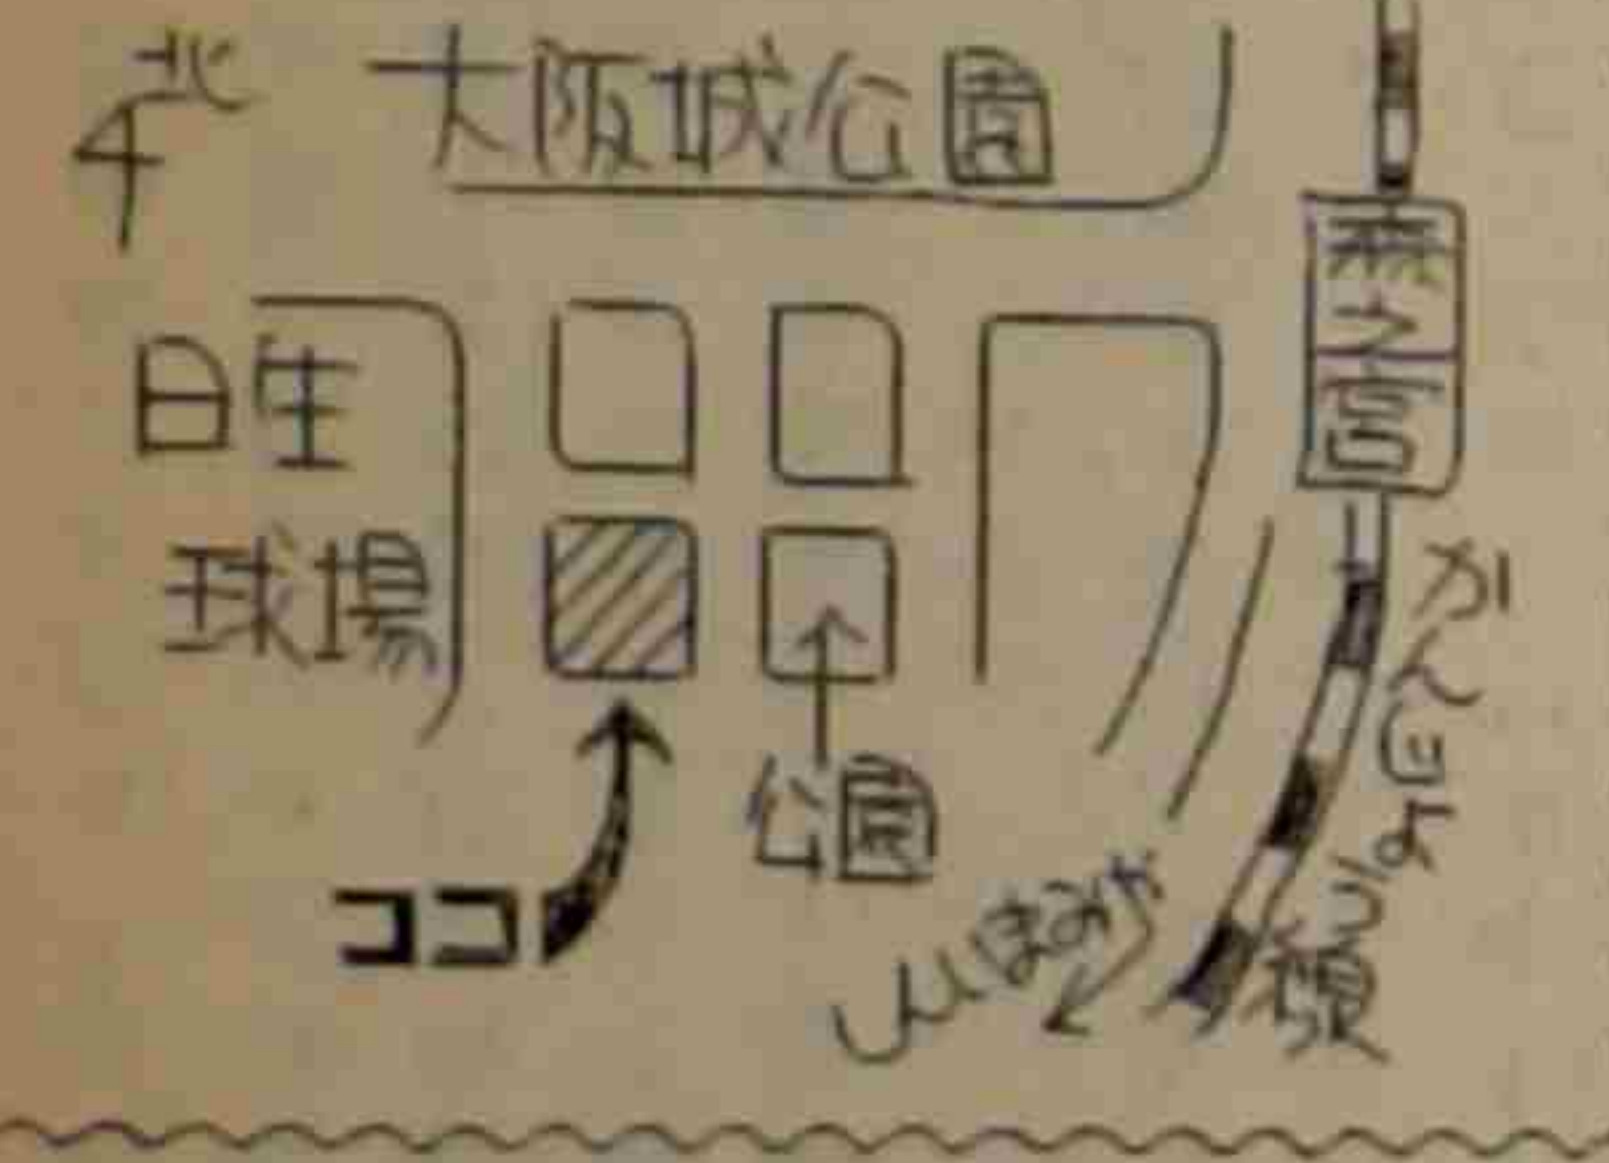 北
大阪城公園
森之宮
日生
球場
公園
ココ
かんじょう線